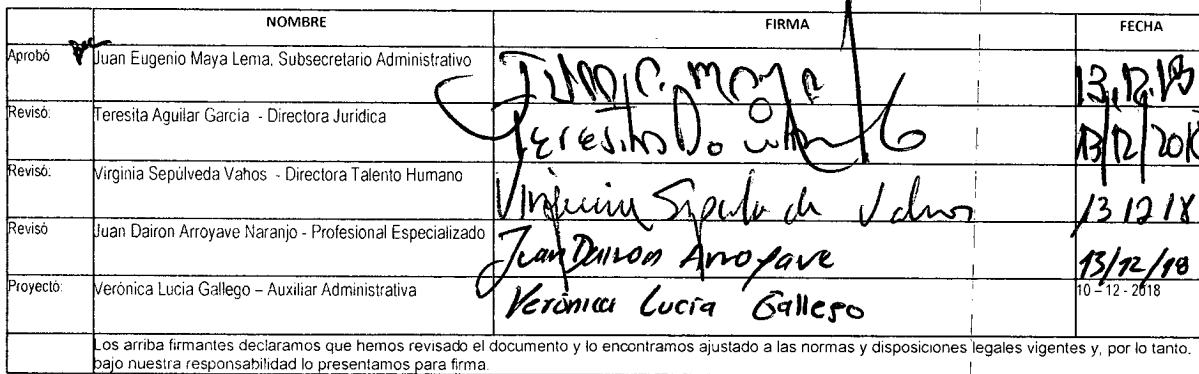 NOMBRE FIRMA FECHA
Aprobó Juan Eugenio Maya Lema, Subsecretario Administrativo Juan E. Maya 13.12.18
Revisó: Teresita Aguilar García - Directora Jurídica Teresita 13/12/2018
Revisó: Virginia Sepúlveda Vahos - Directora Talento Humano Virginia Sepúlveda Vahos 13 12 18
Revisó Juan Dairon Arroyave Naranjo - Profesional Especializado Juan Dairon Arroyave 13/12/18
Proyectó: Verónica Lucia Gallego – Auxiliar Administrativa Verónica Lucía Gallego 10 – 12 - 2018
Los arriba firmantes declaramos que hemos revisado el documento y lo encontramos ajustado a las normas y disposiciones legales vigentes y, por lo tanto,
bajo nuestra responsabilidad lo presentamos para firma.